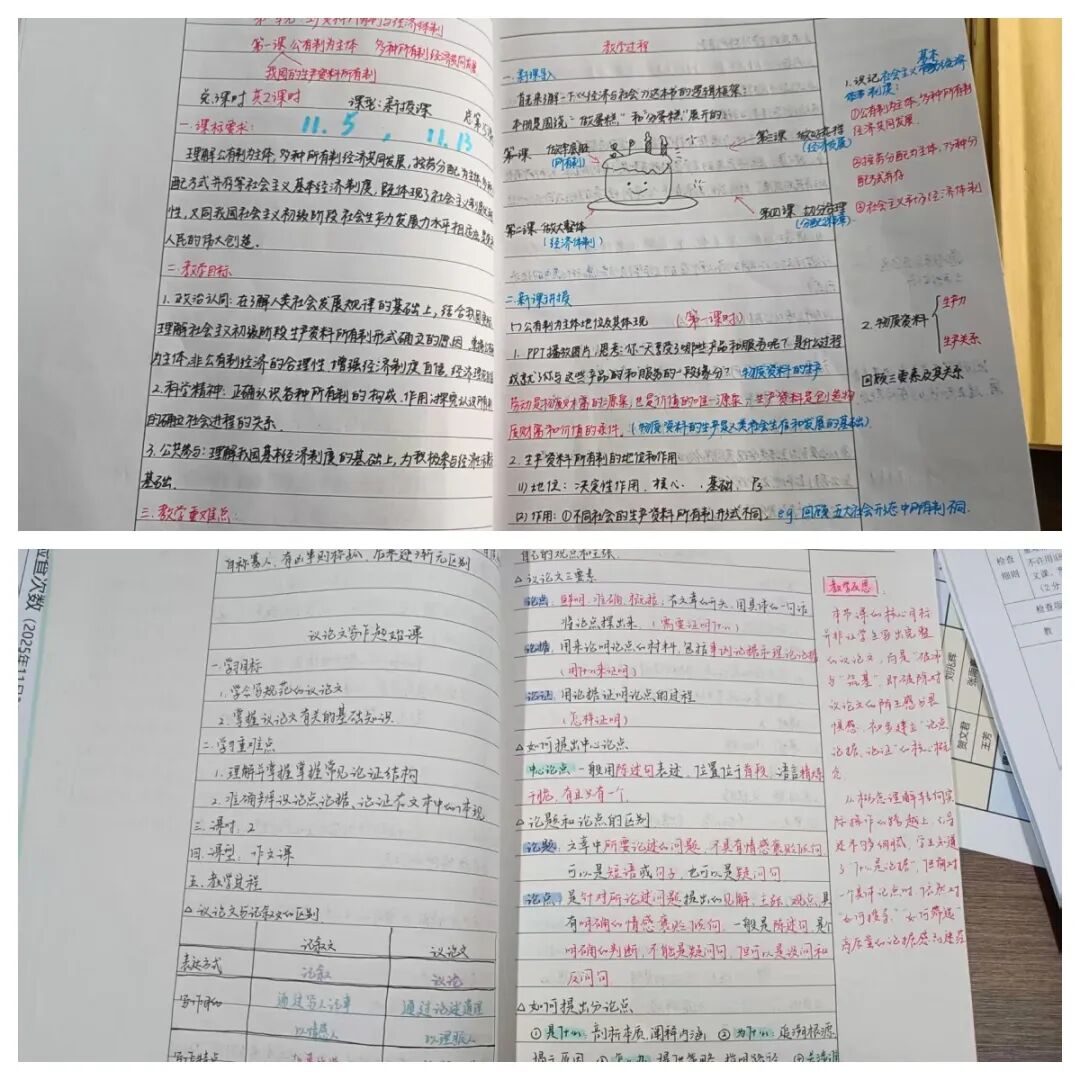 第一课 公有制为主体 多种所有制经济共同发展
我国的生产资料所有制
共2课时
课型:新授课
一.课标要求:
11.5 , 11.13
理解公有制为主体,多种所有制经济共同发展,按劳分配为主体,多种分
配方式并存等社会主义基本经济制度,既体现了社会主义制度优越
性,又同我国社会主义初级阶段社会生产力发展水平相适应,是党和
人民的伟大创造.
二.教学目标
1.政治认同:在了解人类社会发展规律的基础上,结合我国实际
理解社会主义初级阶段生产资料所有制形式确立的原因
为主体,非公有制经济的合理性,增强经济制度自信
2.科学精神:正确认识各种所有制的构成、作用
的确立社会进程的关系.
3.公共参与:理解我国基本经济制度的基础上,为积极参与经济生活
基础.
三.教学重难点:
教学过程
一.新课导入
首先来了解一下《经济与社会》这本书的逻辑框架:
本册是围绕:“做蛋糕”和“分蛋糕”展开的:
第一课 做牢底胚
(所有制)
第三课
(经济发展)
第二课 做大整体
(经济体制)
第四课 切分合理
二.新课讲授
(一)公有制为主体地位及具体表现 (第一课时)
1.PPT播放图片,思考:你一天享受了哪些产品和服务呢?是什么过程
成就了你与这些产品和服务的一段缘分? 物质资料的生产
劳动是物质财富的源泉,也是价值的唯一源泉,生产资料是创造物
质财富和价值的条件.(物质资料的生产是人类社会生存和发展的基础)
2.生产资料所有制的地位和作用
(1)地位:决定性作用、核心、基础
(2)作用:①不同社会的生产资料所有制形式不同, eg:回顾五大社会形态中所有制不同.
1.识记社会主义基本经济
制度:
①公有制为主体,多种所有制
经济共同发展
②按劳分配为主体,多种分
配方式并存
③社会主义市场经济体制
2.物质资料
生产力
生产关系
回顾三要素及其关系
议论文写作起始课
一.学习目标
1.学会写规范的议论文
2.掌握议论文有关的基础知识
二.学习重难点
1.理解并掌握掌握常见论证结构
2.准确辨识论点、论据、论证在文本中的体现
三.课时:2
四.课型:作文课
五.教学过程
△议论文与记叙文的区别
记叙文 议论文
表达方式 记叙 议论
写作目的 通过写人记事 通过论述道理
以情感人 以理服人
写作特点
自己的观点和主张.
△议论文三要素
论点:鲜明、准确、概括,在文章的开头,用具体的一句话
将论点提出来.(需要证明什么)
论据:用来论明论点的材料,包括事实论据和理论论据
(用什么来证明)
论证:用论据证明论点的过程
(怎样证明)
△如何提出中心论点
中心论点一般用陈述句表述,位置位于首段,语言精炼
干脆,有且只有一个.
△论题和论点的区别
论题:文章中所要论述的问题,不具有情感褒贬倾向
可以是短语或句子,也可以是疑问句
论点:是针对所论述问题提出的见解、主张、观点,具
有明确的情感褒贬倾向,一般是陈述句,是个
明确的判断,不能是疑问句,但可以是设问和
反问句.
△如何提出分论点
①是什么:剖析本质,阐释内涵 ②为什么:追溯根源
教学反思
本节课的核心目标
并非让学生写出完整
的议论文,而是“破冰”
与“筑基”,即破除对
议论文的陌生感与畏
惧感,初步建立“论点、
论据、论证”的核心概
念
从概念理解转向实
际操作的跨越上,引导
还不够细致,学生知道
了“什么是论据”,但面对
一个具体论点时,依然对
“如何搜寻”“如何筛选”
检查
细则
王芳